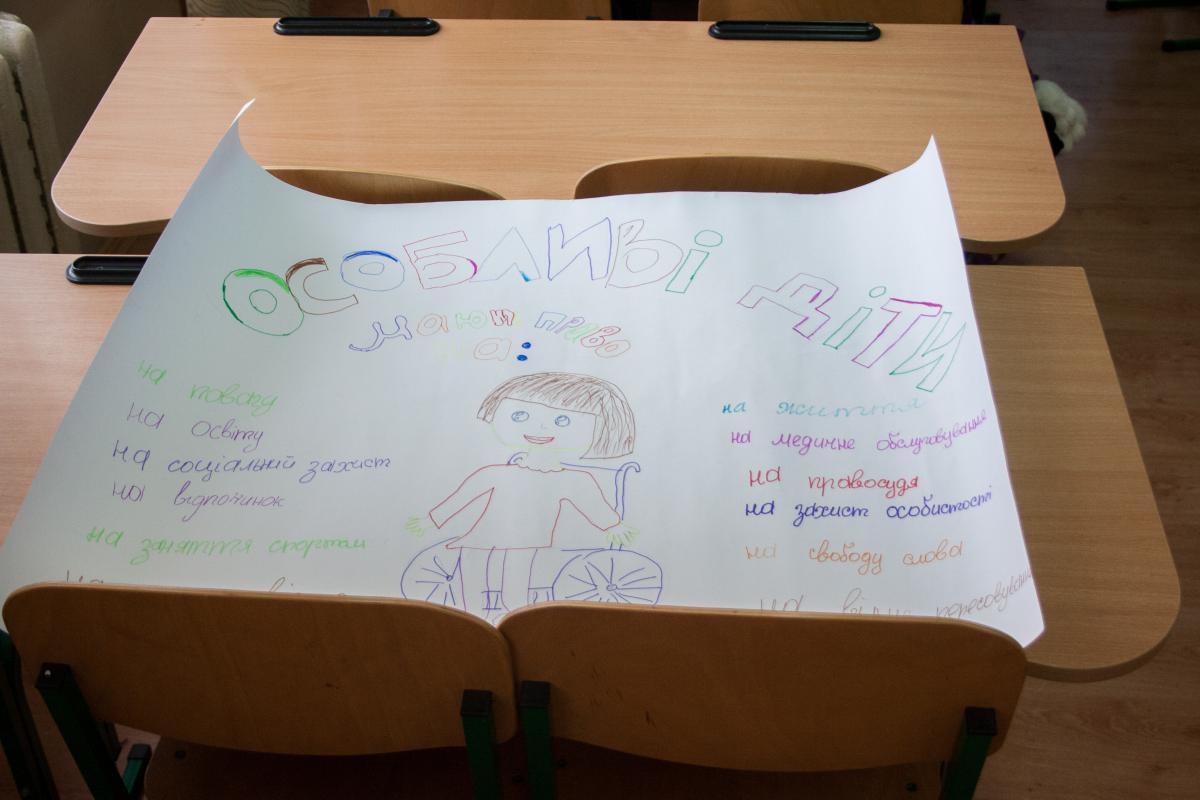 ОСОБЛИВІ ДІТИ
мають право
на:
на повагу
на освіту
на соціальний захист
на відпочинок
на заняття спортом
на
на життя
на медичне обслуговування
на правосудя
на захист особистості
на свободу слова
на вільне пересування